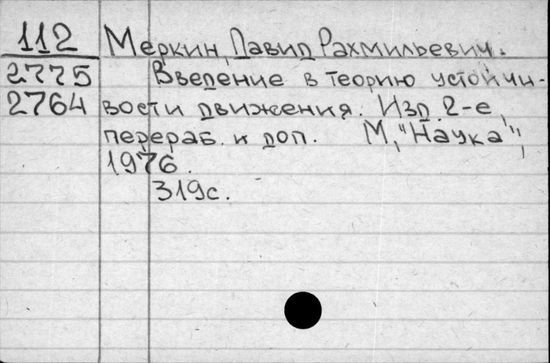 112
2775
2764
Меркин, Давид Рахмильевич.
Введение в теорию устойчи-
вости движения. Изд. 2-е,
перераб. и доп. М, "Наука",
1976.
319с.